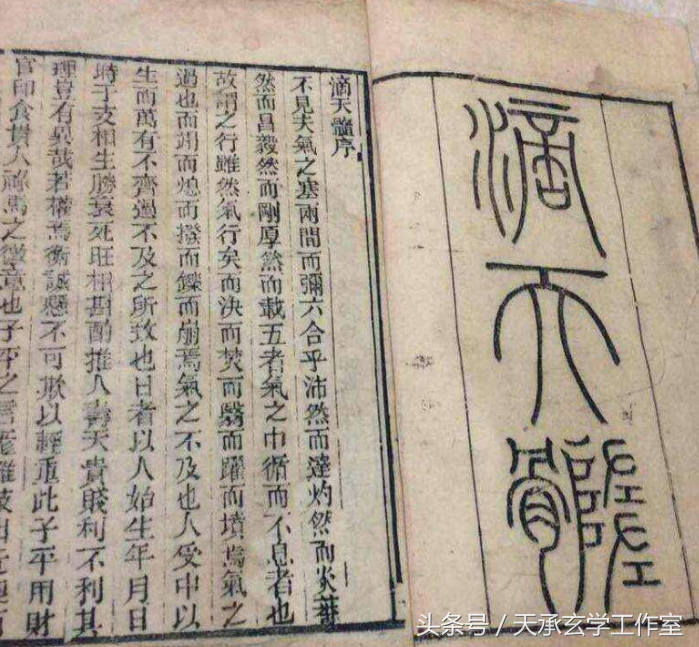 滴天髓
滴天髓序
不見夫氣之塞兩間而彌六合乎沛然而達灼然而炎
然而昌毅然而剛厚然而載五者氣之中循而不息者也
故謂之行雖然氣行矣而決而焚而翳而躍而墳焉氣之
過也而涸而熄而撥而鑠而崩焉氣之不及也人受中以
生而萬有不齊過不及之所致也日者以人始生年月日
時干支相生勝衰死旺相斟酌推人壽夭貴賤利不利其
理豈有異哉若權焉衡誠懸不可欺以輕重此子平用財
官印食貴人祿馬之微意也子平之書
头条号 / 天承玄学工作室